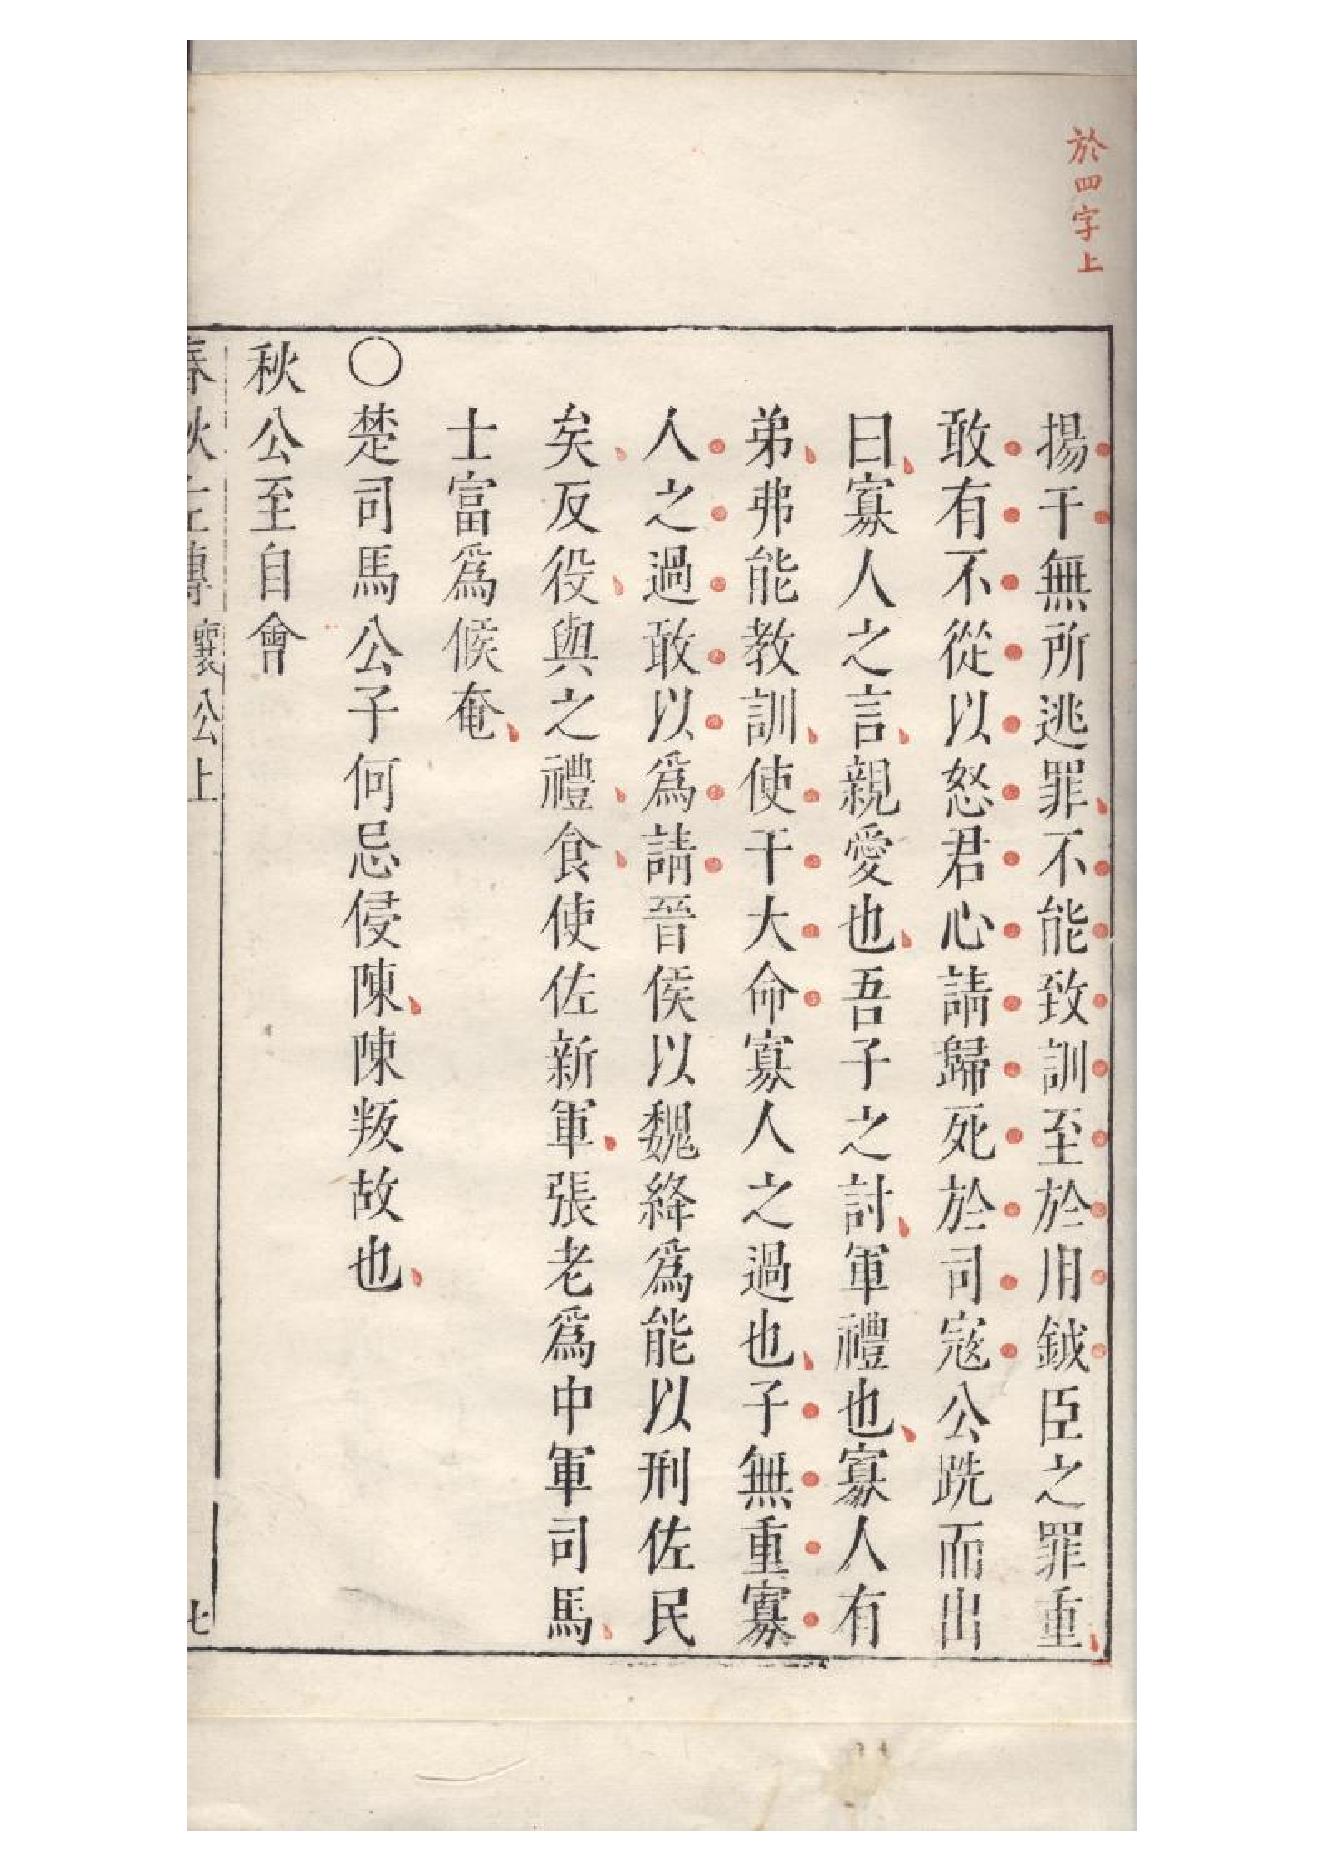 於四字上
揚干無所逃罪不能致訓至於用鉞臣之罪重
敢有不從以怒君心請歸死於司寇公跣而出
曰寡人之言親愛也吾子之討軍禮也寡人有
弟弗能教訓使干大命寡人之過也子無重寡
人之過敢以爲請晉侯以魏絳爲能以刑佐民
矣反役與之禮食使佐新軍張老爲中軍司馬
士富爲候奄
〇楚司馬公子何忌侵陳陳叛故也
秋公至自會
春秋左傳 襄公上 七